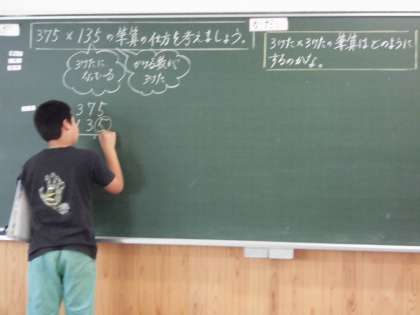 375×135の筆算の仕方を考えましょう。
3けたに
なっている
かける数が
3けた
3けた×3けたの筆算はどのように
するのかな。
375
135